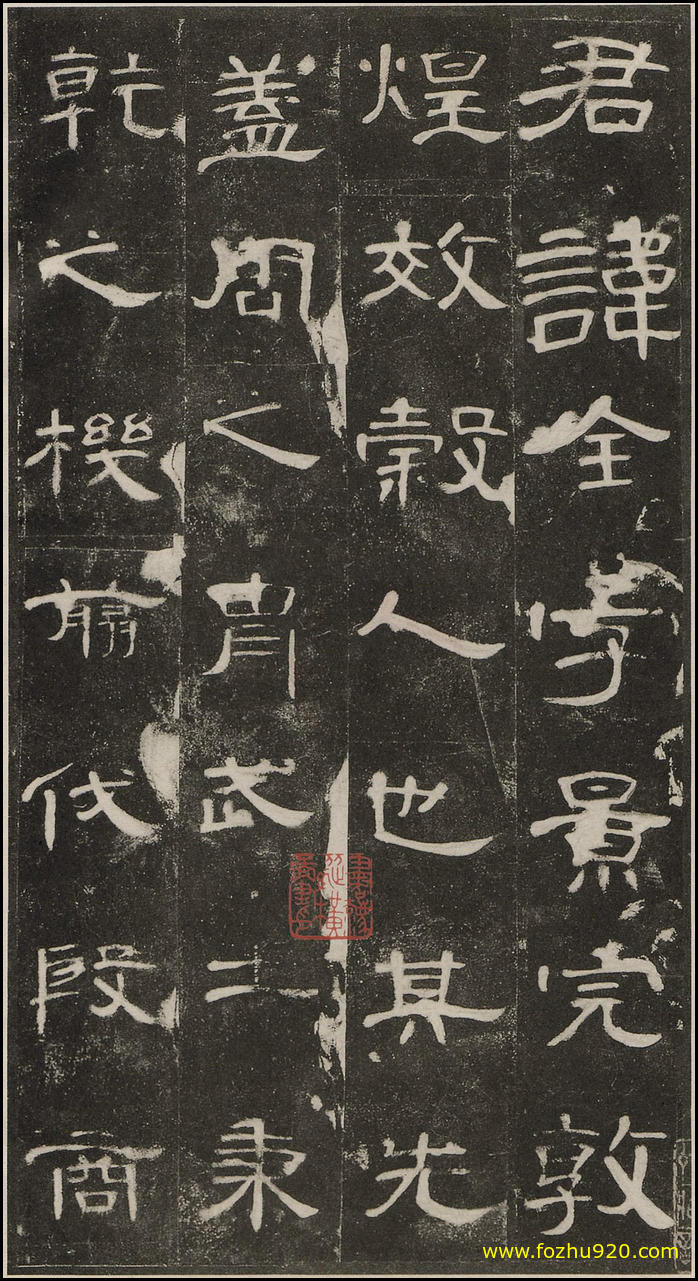 君諱全字景完敦
煌效穀人也其先
蓋周之胄武王秉
乾之機翦伐殷商
www.fozhu920.com